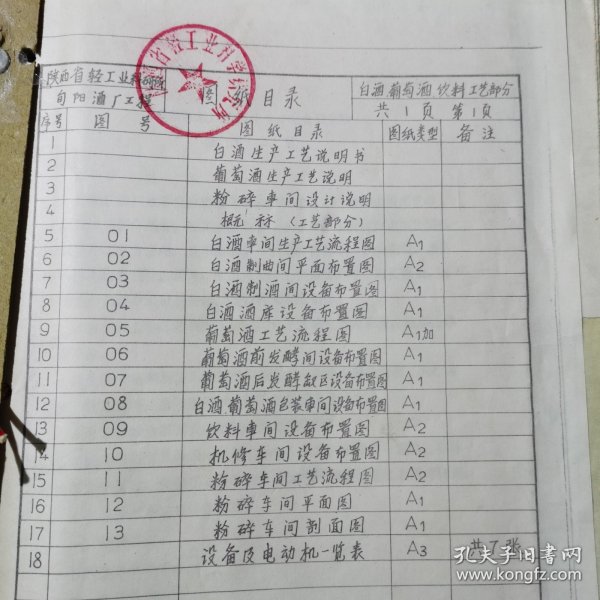 陕西省轻工业科研所
旬阳酒厂工程
图纸目录
白酒葡萄酒饮料工艺部分
共1页 第1页
序号 图号 图纸目录 图纸类型 备注
1 白酒生产工艺说明书
2 葡萄酒生产工艺说明
3 粉碎车间设计说明
4 概标（工艺部分）
5 01 白酒车间生产工艺流程图 A1
6 02 白酒制曲间平面布置图 A2
7 03 白酒制酒间设备布置图 A1
8 04 白酒酒库设备布置图 A1
9 05 葡萄酒工艺流程图 A1加
10 06 葡萄酒前发酵间设备布置图 A1
11 07 葡萄酒后发酵敞区设备布置图 A1
12 08 白酒葡萄酒包装车间设备布置图 A1
13 09 饮料车间设备布置图 A2
14 10 机修车间设备布置图 A2
15 11 粉碎车间工艺流程图 A2
16 12 粉碎车间平面图 A1
17 13 粉碎车间剖面图 A1
18 设备及电动机一览表 A3 共7张
孔夫子旧书网
www.kongfz.com